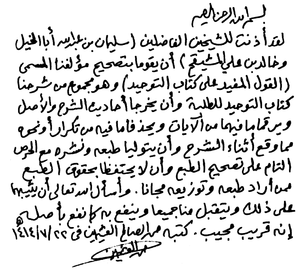 بسم الله الرحمن الرحيم
لقد أذنت للشيخين الفاضلين (سليمان بن عبدالله أبا الخيل
وخالد بن علي المشيقح) أن يقوما بتصحيح مؤلفنا المسمى
(القول المفيد على كتاب التوحيد) وهو مجموع من شرحنا
كتاب التوحيد للطلبة وأن يخرجا أحاديث الشرح والأصل
ويرقما ما فيهما من الآيات ويحذفا ما فيه من تكرار أو نحوه
مما وقع أثناء الشرح وأن يتوليا طبعه ونشره مع الحرص
التام على تصحيح الطبع وأن لا يحتفظا بحقوق الطبع
لمن أراد طبعه وتوزيعه مجانا. وأسأل الله تعالى أن يثيبهما
على ذلك ويتقبل منا جميعا وينفع به كما نفع بأصله
إنه قريب مجيب. كتبه محمد الصالح العثيمين في ١٤١٤/٧/٢٢
محمد العثيمين